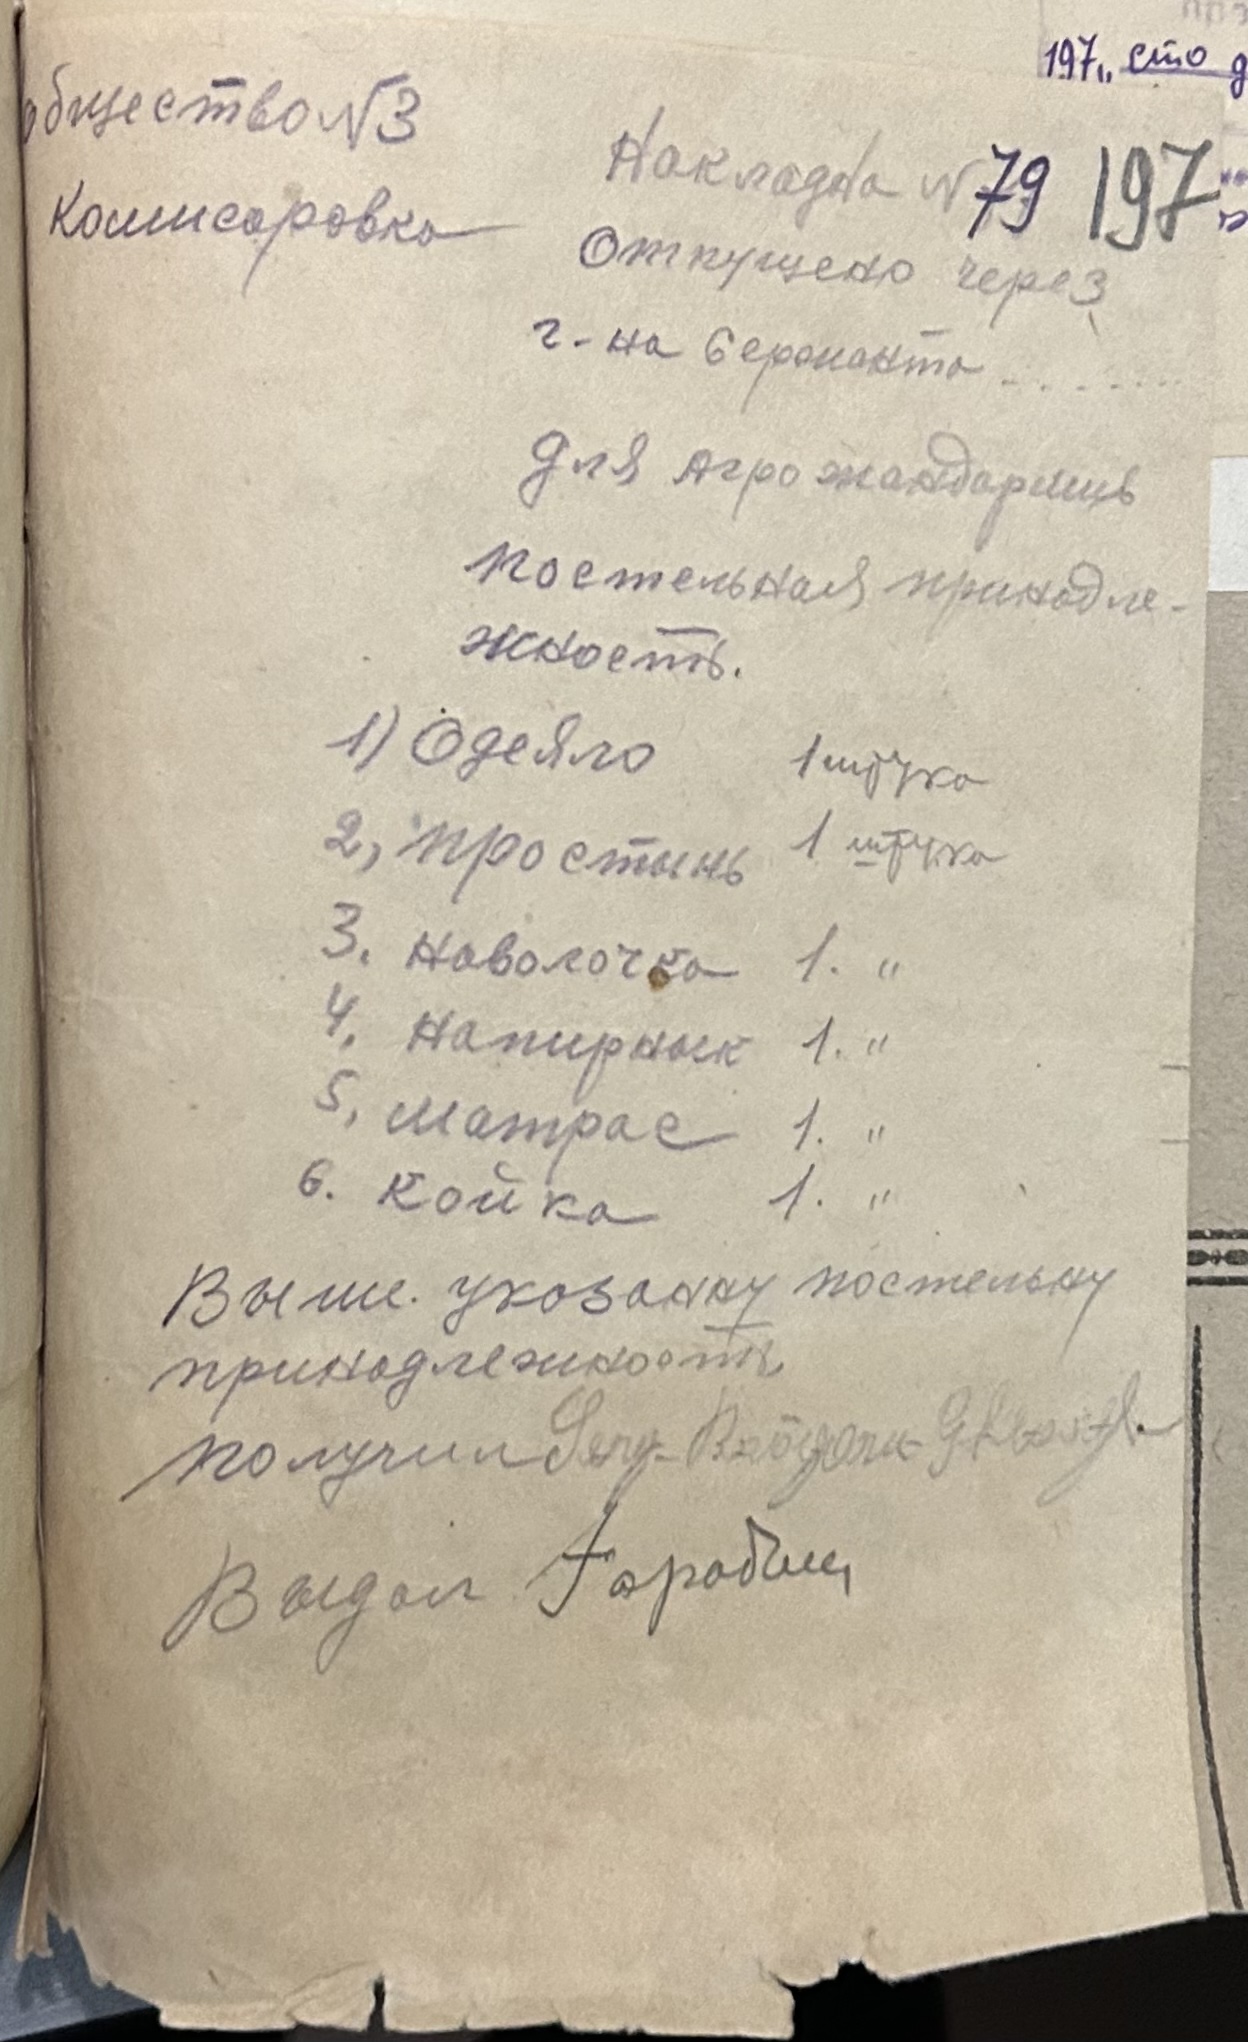 197„ сто
общество N3
Комисаровка
Накладна N 79 197
Отпущено через
г-на Сержанта .......
для Агрожандармиь
Постельная принадле-
жность.
1) Одеяло 1 штука
2, простынь 1 штука
3. Наволочка 1. "
4. Напирнык 1. "
5. Матрас 1. "
6. Койка 1. "
Выше. указанну постельну
принадлежность
получил Serg.
Выдал